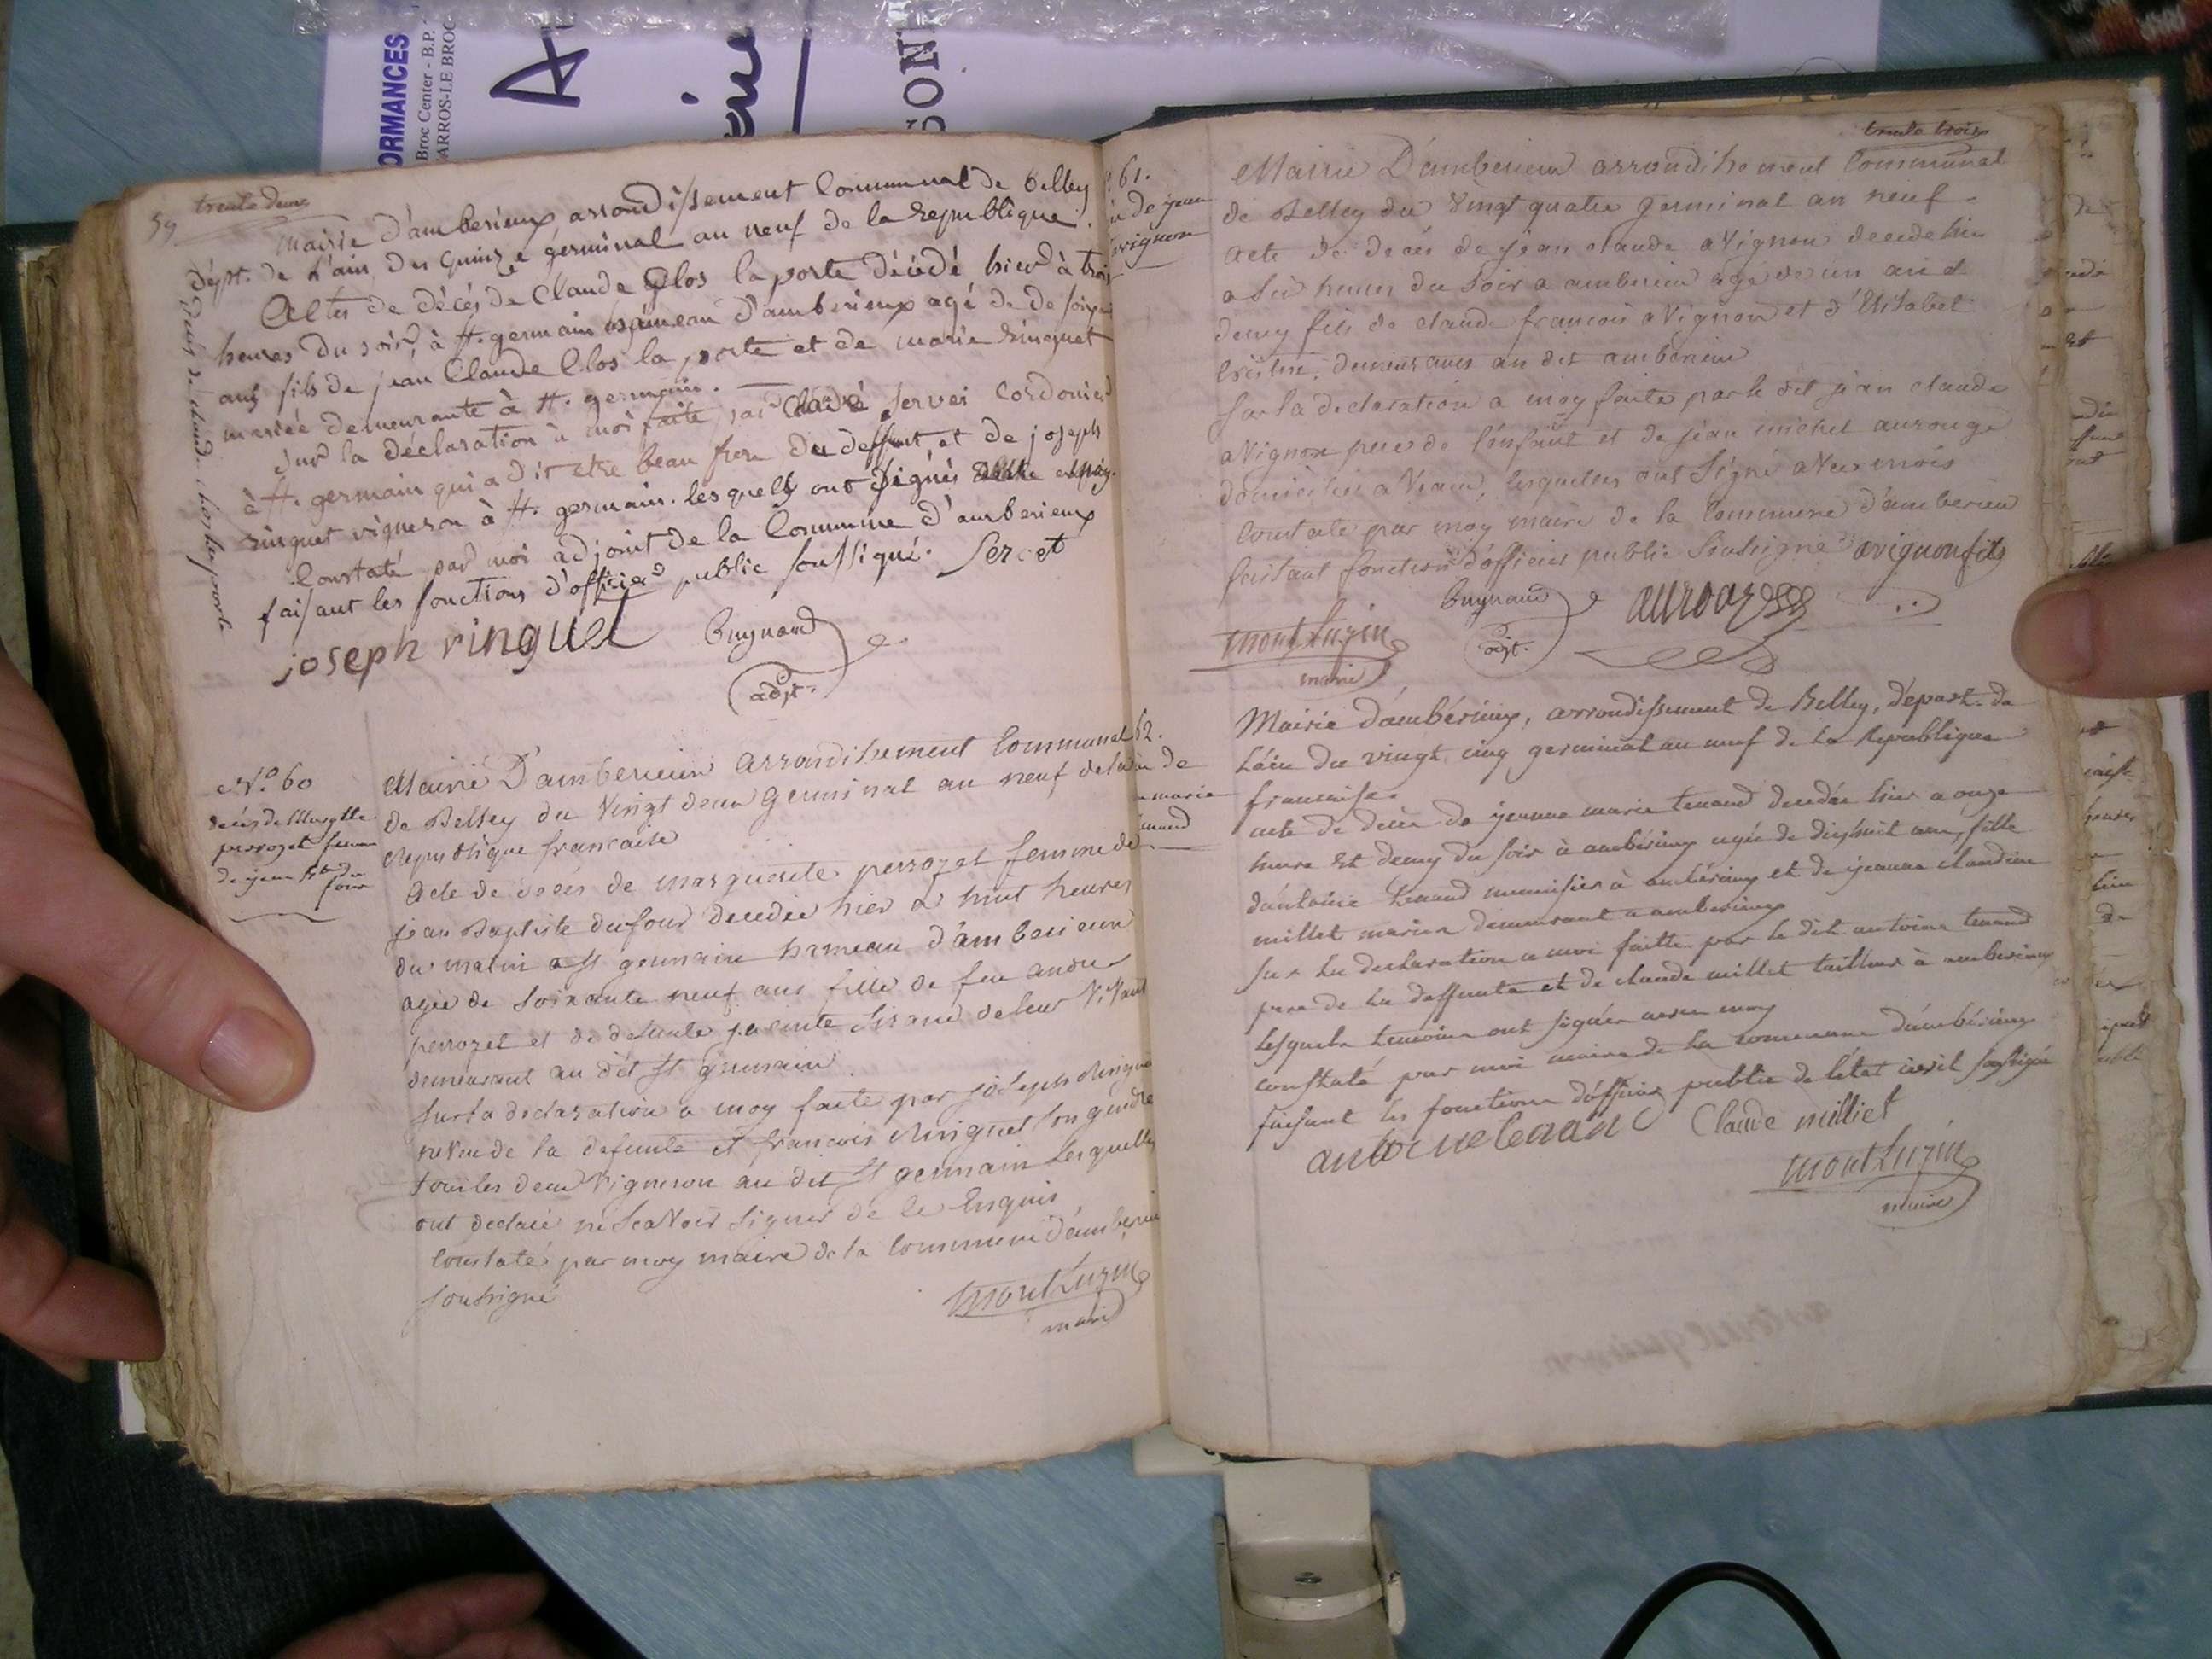 ORMANCES
Broc Center - B.P.
ARROS-LE BROC
SON
59
trente deux
Mairie d'amberieux arrondissement Communal de belley
dépt. de L'ain, du quinze germinal an neuf de la Republique.
Actes de décés de Claude Clos la porte décédé hier à trois
heures du soir, à St. germain hameau d'amberieux agé de de soixante
ans fils de jean Claude Clos la porte et de marie ringuet
mariée demeurante à St. germain.
Sur la déclaration à moi faite par Claude servei Cordonier
à St. germain qui a dit etre beau frere du deffunt et de joseph
ringuet vigneron à St. germain. lesquels ont signés
Constaté par moi adjoint de la Commune d'amberieux
faisant les fonctions d'officier public soussigné. Servet
joseph ringuet
Bugnand
adjt.
décés de claude clos la porte
N.o 60
décés de Margtte
perrozet femme
de jean Bte du
four
Mairie D'amberieux arrondissement Communal
de Belley du Vingt deux Germinal an neuf de la
Republique francaise
Acte de décés de marguerite perrozet femme de
jean Baptiste dufour decedée hier a huit heures
du matin a St germain hameau d'amberieux
agée de soixante neuf ans fille de feu andre
perrozet et de defunte de leur Vivant
demeurant au dit St germain
sur la declaration a moy faite par joseph Ringuet
neveu de la defunte et francois Ringuet son gendre
tous les deux Vigneron au dit St germain Lesquelles
ont declaré ne scavoir signer de ce Enquis
Constaté par moy maire de la Commune d'amberieu
soussigné
Montluzin
maire
trente trois
61.
de jean
avignon
Mairie D'amberieux arrondissement Communal
de Belley du Vingt quatre germinal an neuf
acte de decés de jean claude aVignon decede hier
a six heures du soir a amberieu agé de un an et
demy fils de claude francois aVignon et d'Elisabet
demeurans au dit amberieu
sur la declaration a moy faite par le dit jean claude
aVignon pere de l'enfant et de jean michel aurouge
domicilies a lesquelles ont Signé avec mois
Constaté par moy maire de la Commune d'amberieu
faisant fonction d'officier public soussigné avignon fils
Bugnand
adjt.
Montluzin
maire
62.
de
marie
tenand
Mairie d'ambérieux, arrondissement de Belley, départ. de
L'ain du vingt cinq germinal an neuf de la Republique
francaise
acte de décès de jeanne marie tenand decedée hier a onze
heure et demy du soir à ambérieux agée de dixhuit ans, fille
d'antoine tenand menuisier à ambérieux et de jeanne claudine
millet mariés demeurant a amberieux
sur la declaration a moi faitte par le dit antoine tenand
pere de la deffunte et de claude millet tailleur à amberieux
Lesquels temoins ont signés avec moy
constaté par moi maire de la commune d'ambérieux
faisant les fonctions d'officier public de l'état civil soussigné
antoine tenand
Claude milliet
Montluzin
maire